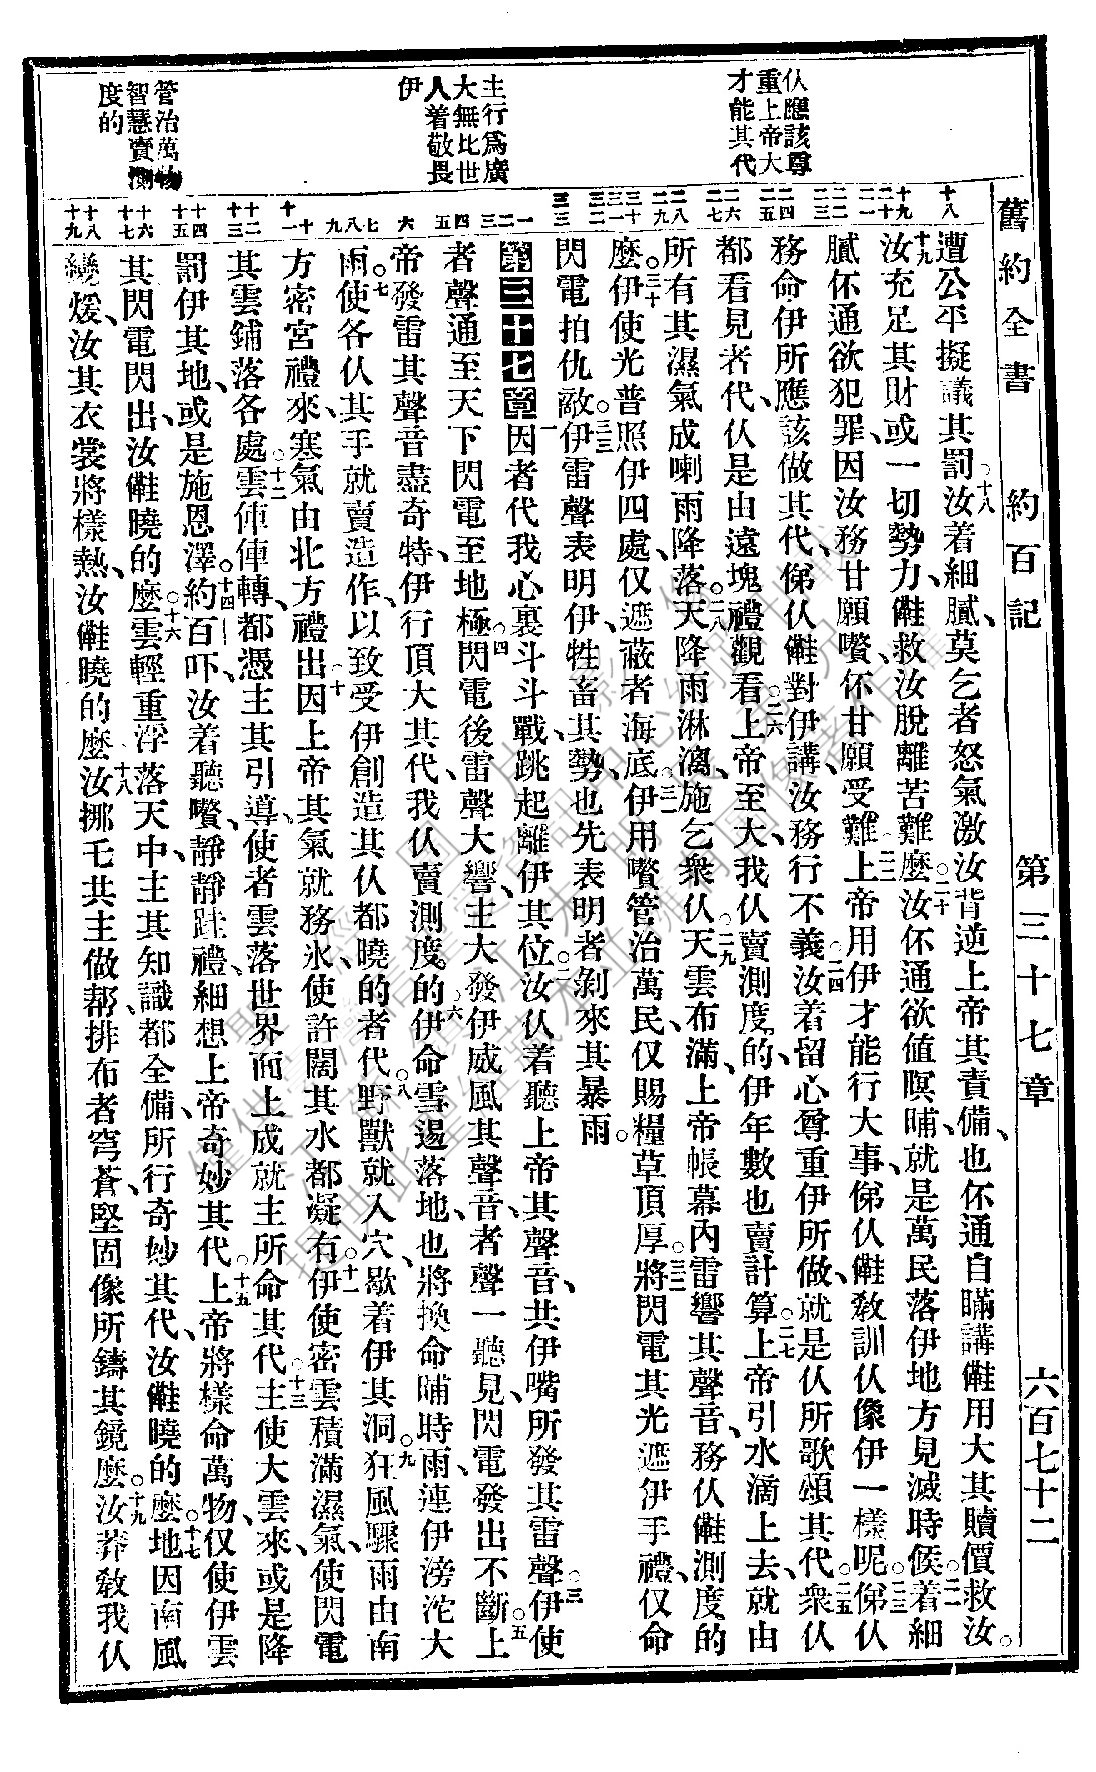 舊約全書 約百記 第三十七章 六百七十二
仈應該尊
重上帝大
才能其代
主行爲廣
大無比世
人着敬畏
伊
管治萬物
智慧賣測
度的
十八 十九 二十 二一 二二 二三 二四 二五 二六 二七 二八 二九 三十 三一 三二 三三 一 二 三 四 五 六 七 八 九 十 十一 十二 十三 十四 十五 十六 十七 十八 十九
遭公平擬議其罰、十八汝着細膩、莫乞者怒氣激汝背逆上帝其責備、也伓通自瞞講、㑚用大其贖價救汝。
十九汝充足其財、或一切勢力、㑚救汝脫離苦難麼。二十汝伓通欲値暝晡、就是萬民落伊地方見滅時候。二一着細
膩伓通欲犯罪、因汝務甘願嚽、伓甘願受難。二二上帝用伊才能行大事、俤仈㑚敎訓仈像伊一樣呢。二三俤仈
務命伊所應該做其代、俤仈㑚對伊講、汝務行不義。二四汝着留心尊重伊所做、就是仈所歌頌其代。二五衆仈
都看見者代、仈是由遠塊禮觀看。二六上帝至大、我仈賣測度的、伊年數也賣計算。二七上帝引水滴上去、就由
所有其濕氣成喇雨降落。二八天降雨淋漓、施乞衆仈。二九天雲布滿、上帝帳幕內雷響其聲音、務仈㑚測度的
麼。三十伊使光普照伊四處、仅遮蔽者海底。三一伊用嚽管治萬民、仅賜糧草頂厚。三二將閃電其光遮伊手禮、仅命
閃電拍仇敵。三三伊雷聲表明伊、牲畜其勢、也先表明者剝來其暴雨。
第三十七章 一因者代我心裏斗斗戰、跳起離伊其位。二汝仈着聽上帝其聲音、共伊嘴所發其雷聲。三伊使
者聲通至天下、閃電至地極。四閃電後、雷聲大響、主大發伊威風其聲音、者聲一聽見、閃電發出不斷。五上
帝發雷其聲音盡奇特、伊行頂大其代、我仈賣測度的。六伊命雪遏落地、也將換命晡時雨、連伊滂沱大
雨。七使各仈其手就賣造作、以致受伊創造其仈都曉的者代。八野獸就入穴、歇着伊其洞。九狂風驟雨由南
方密宮禮來、寒氣由北方禮出。十因上帝其氣就務氷、使許闊其水都凝冇。十一伊使密雲積滿濕氣、使閃電
其雲鋪落各處。十二雲俥俥轉、都憑主其引導、使者雲落世界面上、成就主所命其代。十三主使大雲來、或是降
罰伊其地、或是施恩澤。十四約百吓、汝着聽嚽、靜靜跬禮、細想上帝奇妙其代。十五上帝將樣命萬物、仅使伊雲
其閃電閃出、汝㑚曉的麼。十六雲輕重浮落天中、主其知識都全備、所行奇妙其代、汝㑚曉的麼。十七地因南風
燒煖、汝其衣裳將樣熱、汝㑚曉的麼。十八汝挪乇共主做帮、排布者穹蒼、堅固像所鑄其鏡麼。十九汝莽敎我仈